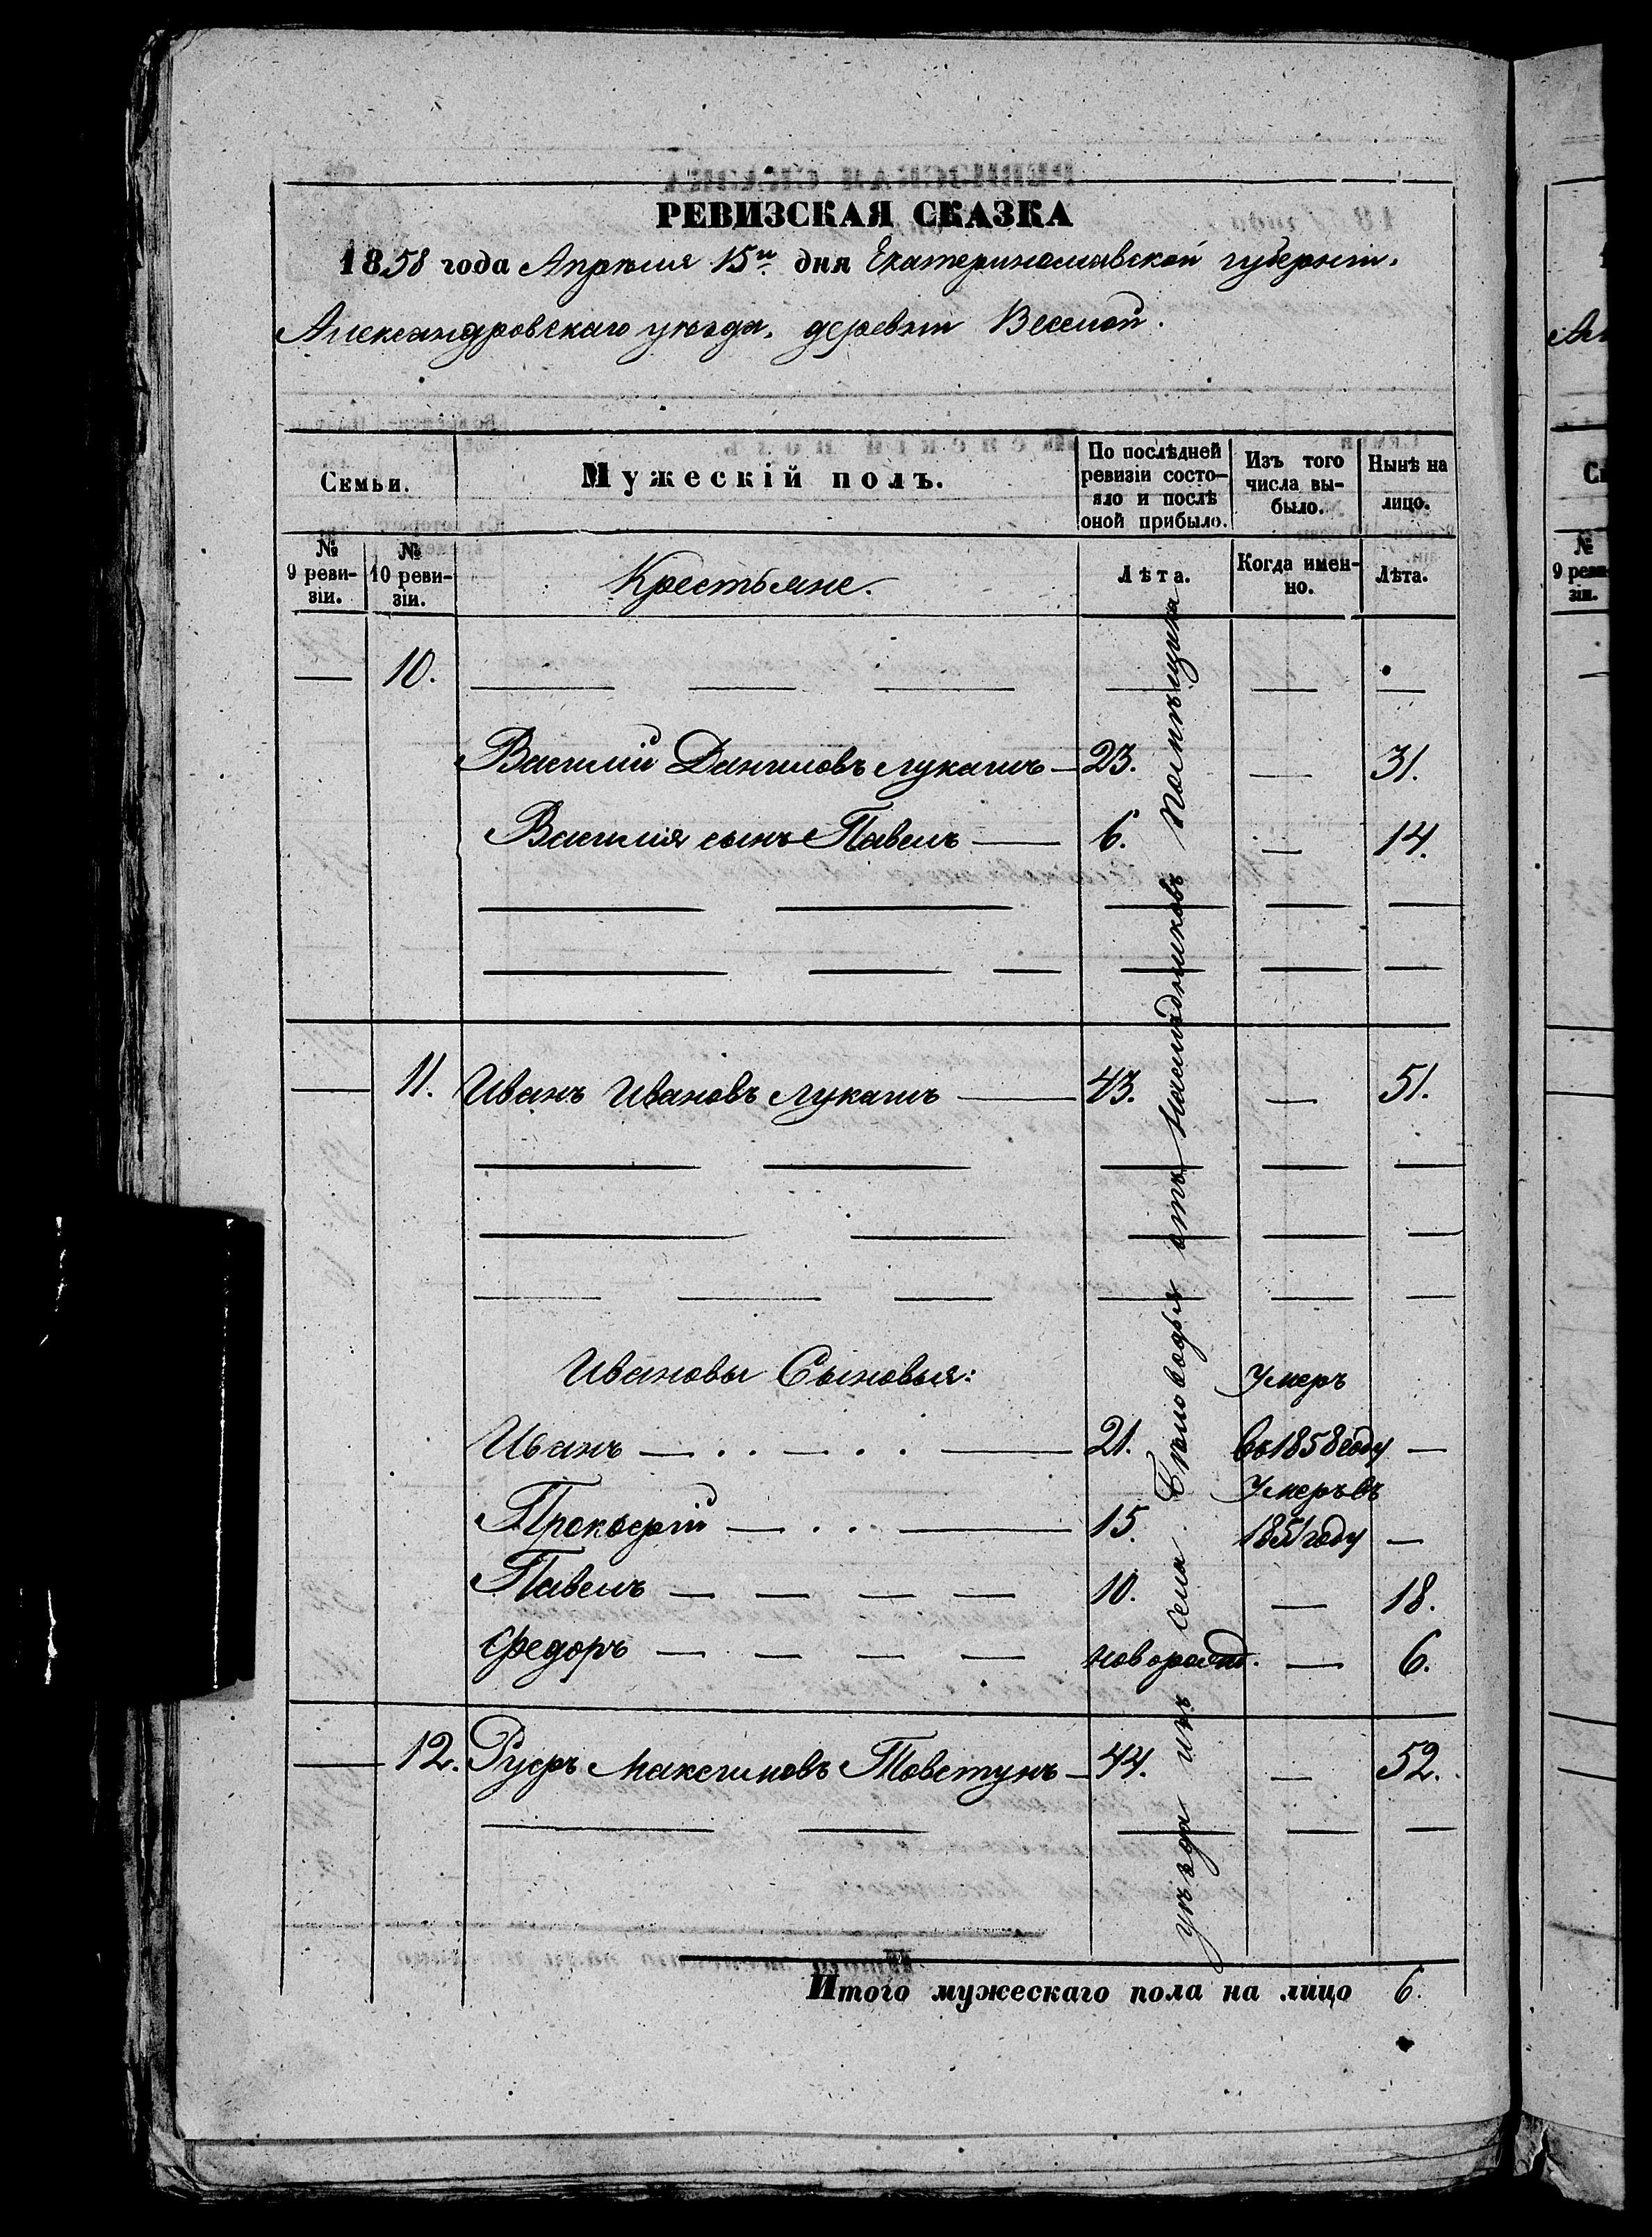 РЕВИЗСКАЯ СКАЗКА
1858 года Апрѣля 15го дня Екатеринославской губерніи.
Александровскаго уѣзда, деревни Веселой.
Семьи.
Мужескій полъ.
По послѣдней
ревизіи состо-
яло и послѣ
оной прибыло.
Изъ того
числа вы-
было.
Нынѣ на
лицо.
№
9 реви-
зіи.
№
10 реви-
зіи.
Крестьяне.
Лѣта.
Когда имен-
но.
Лѣта.
10.
Василій Даниловъ Лукашъ 23. 31.
Василія сынъ Павелъ 6. 14.
11. Иванъ Ивановъ Лукашъ 43. 51.
Ивановы Сыновья:
Иванъ 21. Умеръ
въ 1858 году
Прокофій 15. Умеръ въ
1851 году
Павелъ 10. 18.
Федоръ новорожд. 6.
12. Руфъ Максимовъ Товстунъ 44. 52.
уѣзда изъ села Бѣловодья отъ наслѣдниковъ помѣщика
Итого мужескаго пола на лицо 6.
№
9 реви-
зіи.